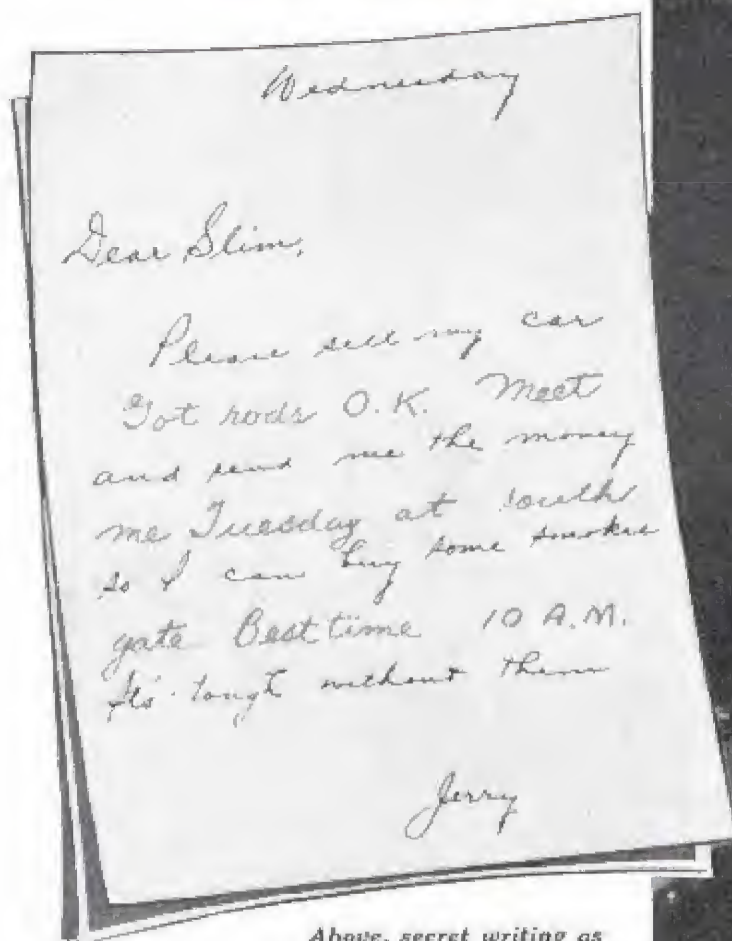 Wednesday
Dear Slim,
Please sell my car
Got rods O.K. Meet
and send me the money
me Tuesday at south
so I can buy some smokes
gate Best time 10 A.M.
It's tough without them
Jerry
Above, secret writing as